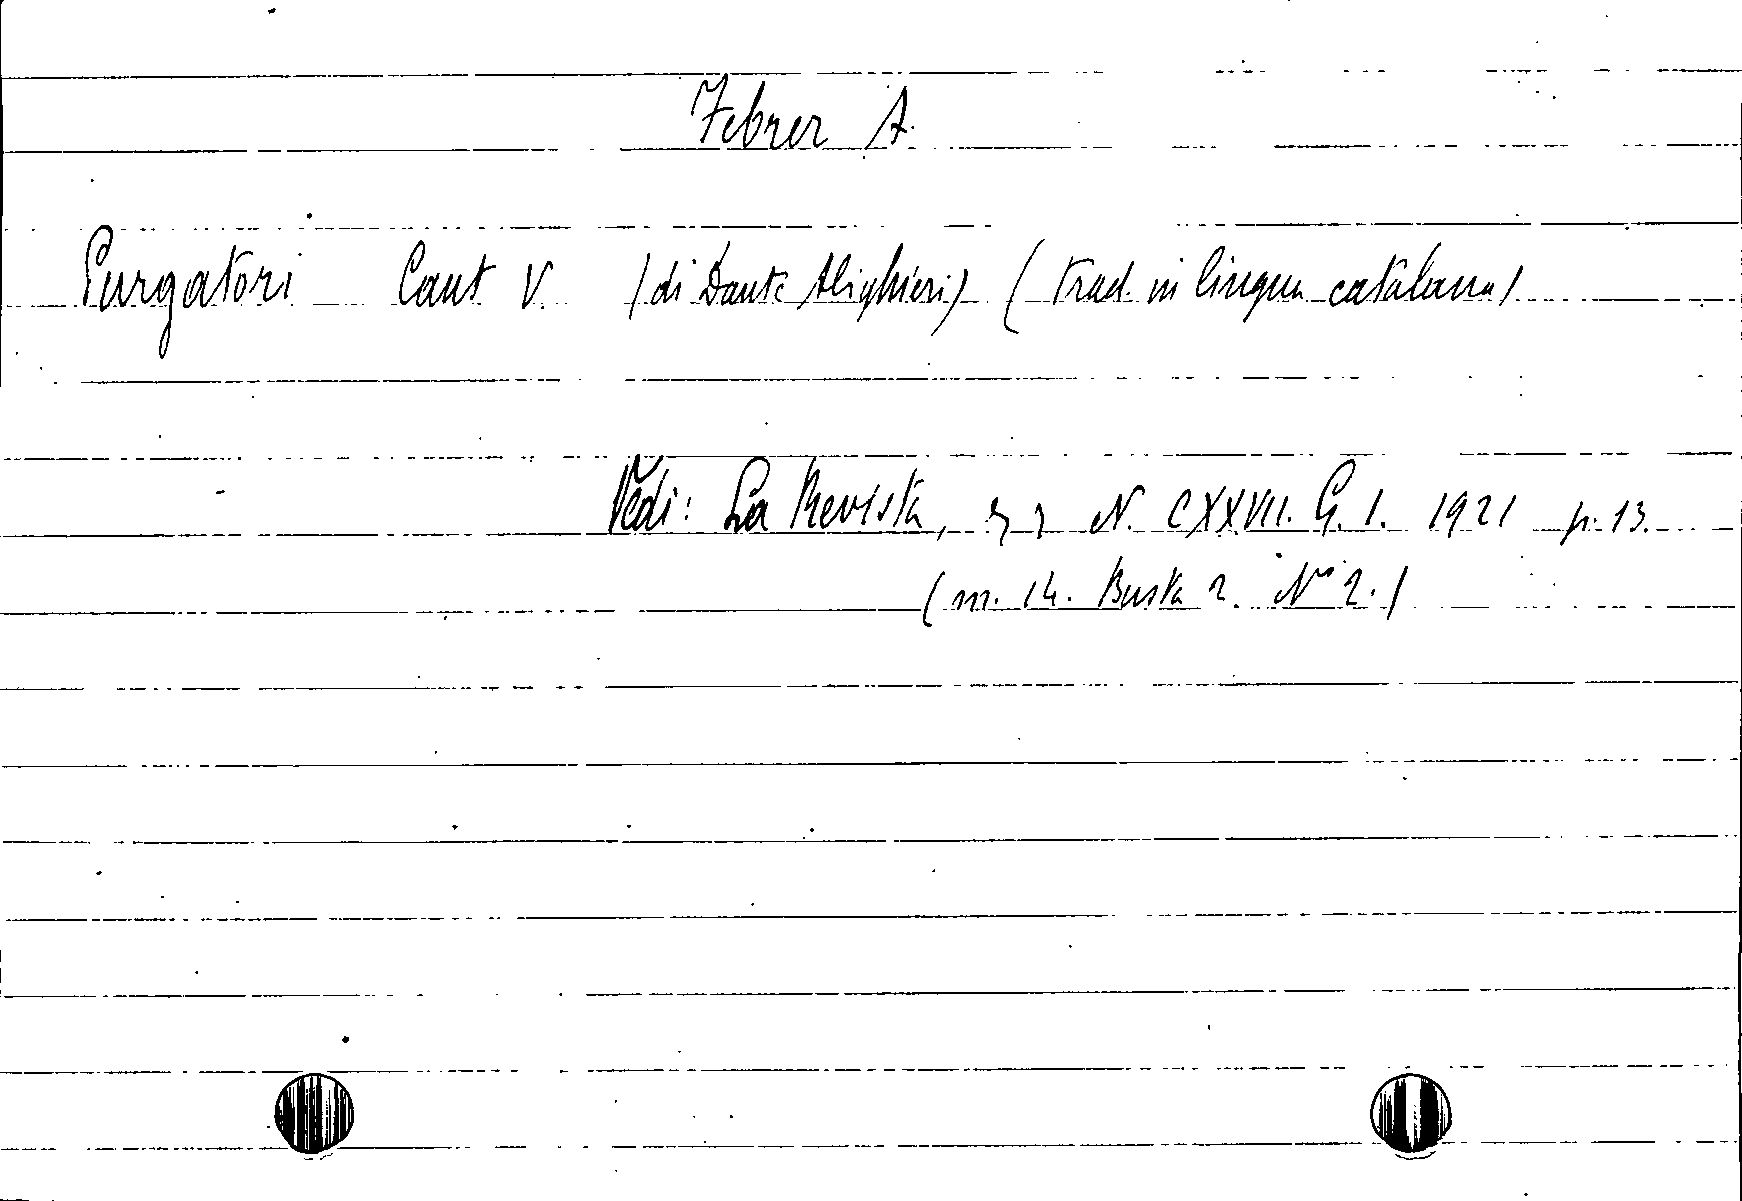 Febrer A.
Purgatori Cant V. (di Dante Alighieri) (trad. in lingua catalana)
Vedi: La Revista, N. CXXVII. G. 1. 1921 p. 13.
(m. 14. Busta 2. N° 2.)